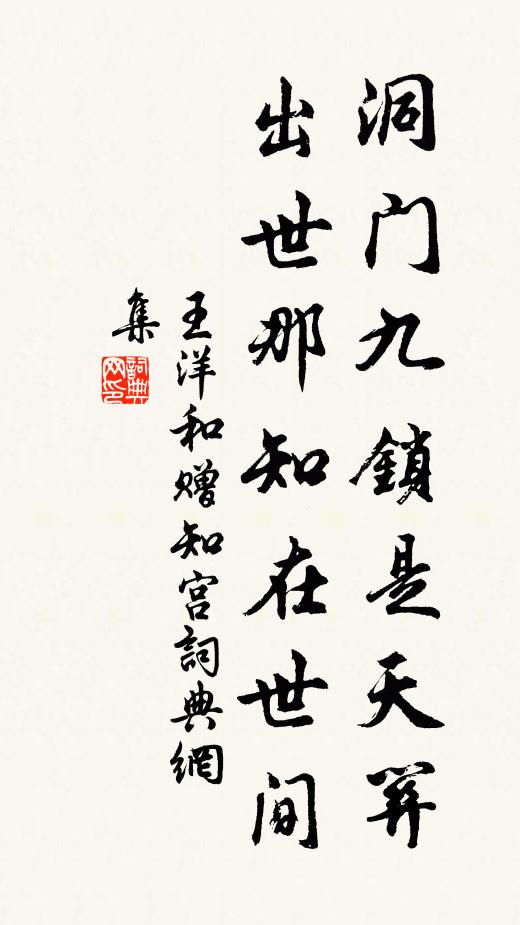 洞门九鎖是天關
出世那知在世间
王洋和赠知宫詞典網
集
詞典网印